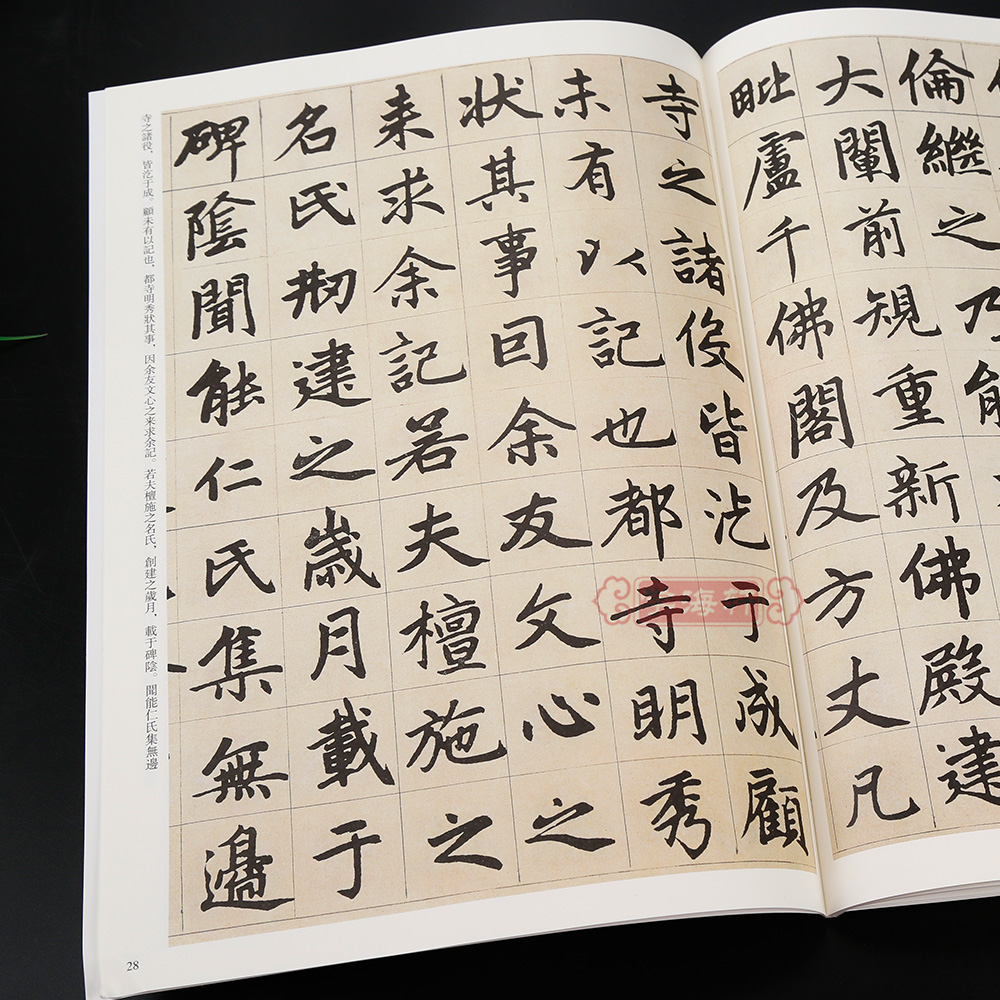 倫繼之乃能
大闡前規重新佛殿建
毗盧千佛閣及方丈凡
寺之諸役皆汔于成顧
未有以記也都寺明秀
狀其事因余友文心之
来求余記若夫檀施之
名氏刱建之歲月載于
碑陰聞能仁氏集無邊
寺之諸役，皆汔于成。顧未有以記也，都寺明秀狀其事，因余友文心之来求余記。若夫檀施之名氏，創建之歲月，載于碑陰。聞能仁氏集無邊
28